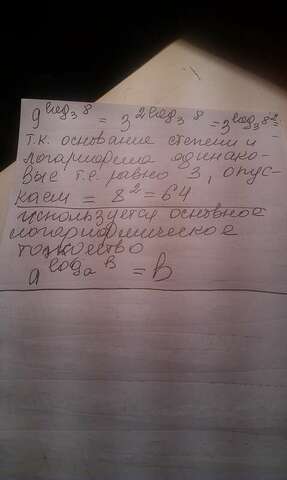 9^log₃8 = 3^2log₃8 = 3^log₃8² =
т.к. основание степени и
логарифма одинако-
вые т.е. равно 3, опус-
каем = 8² = 64
используется основное
логарифмическое
тождество
a^logₐb = b